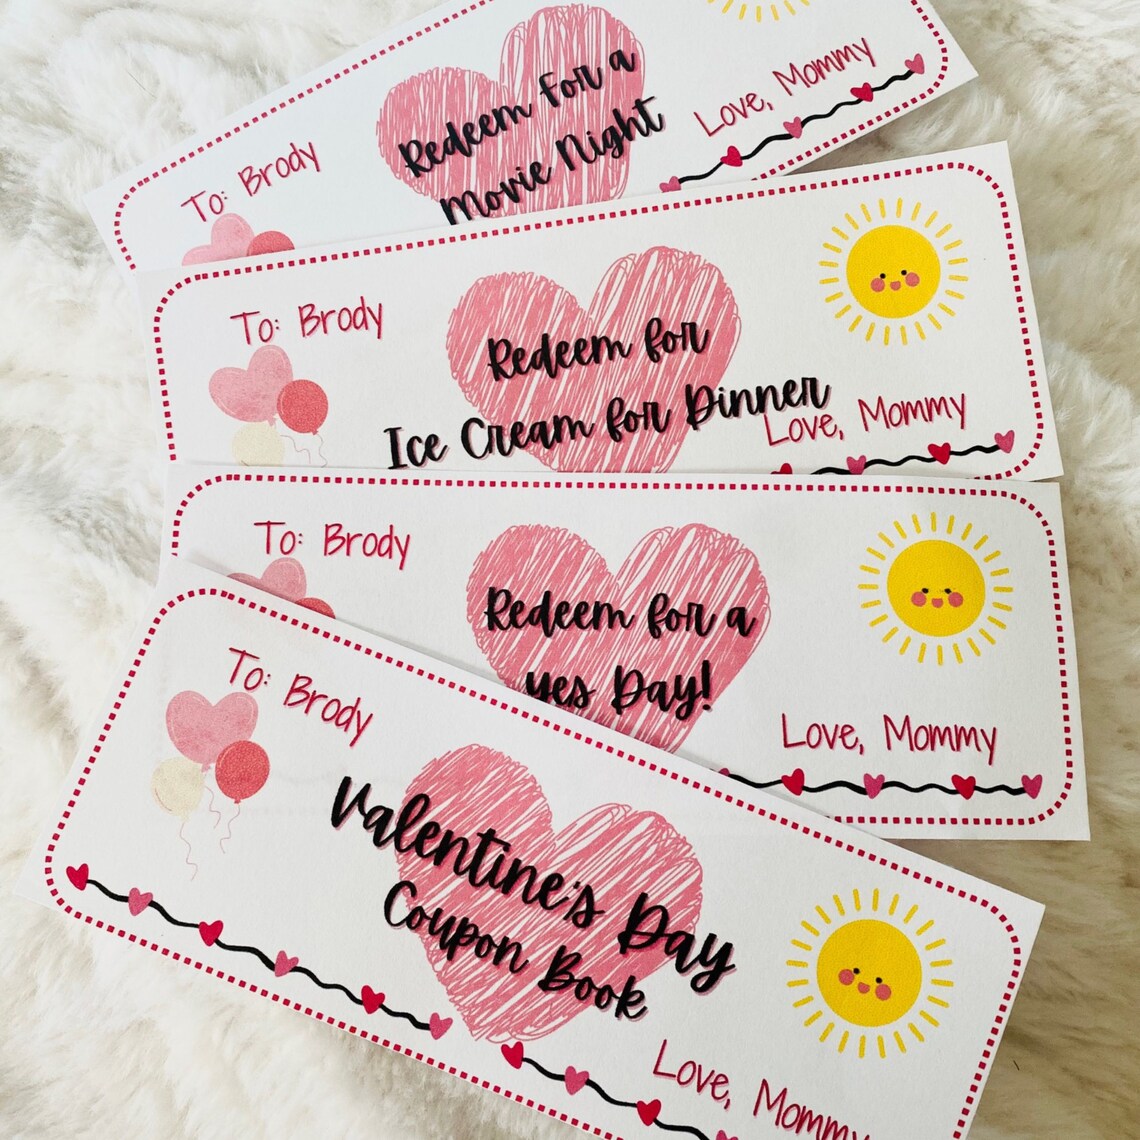 To: Brody
Redeem For a
Movie Night
Love, Mommy
To: Brody
Redeem for
Ice Cream for Dinner
Love, Mommy
To: Brody
Redeem for a
yes Day!
Love, Mommy
To: Brody
Valentine's Day
Coupon Book
Love, Mommy